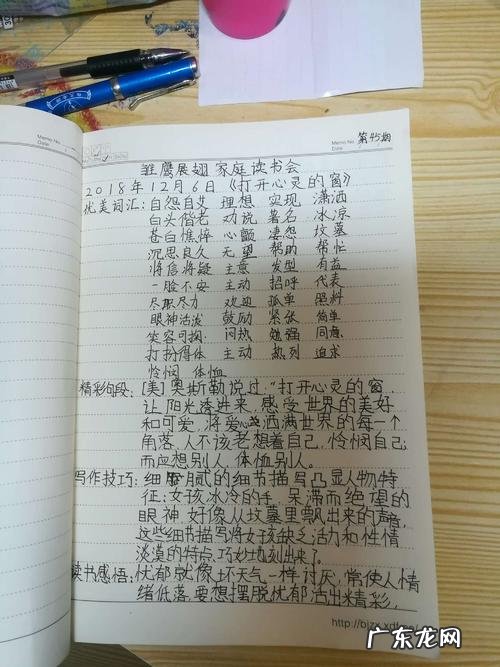 第45期
Memo No.
Date
雏鹰展翅 家庭读书会
2018年12月6日《打开心灵的窗》
优美词汇:自怨自艾 理想 实现 潇洒
白头偕老 劝说 著名 冰凉
苍白憔悴 心颤 凄怨 坟墓
沉思良久 无望 帮助 帮忙
将信将疑 主意 发型 有益
一脸不安 主动 招呼 代表
尽取尽力 欢迎 孤单 照料
眼神活泼 鼓励 紧张 简单
笑容可掬 闷热 勉强 同意
打扮得体 主动 热烈 追求
怜悯 体恤
精彩句段:[美]奥斯勒说过:"打开心灵的窗,
让阳光透进来,感受世界的美好
和可爱,将爱心洒满世界的每一个
角落,人不该老想着自己,怜悯自己
而应想别人,体恤别人。
写作技巧:细腻的细节描写凸显人物特
征:女孩冰冷的手,呆滞而绝望的
眼神,好像从坟墓里飘出来的声音,
这些细节描写将女孩缺乏活力和性情
淡漠的特点,巧妙地刻出来了。
读书感悟:忧郁就像坏天气一样讨厌,常使人情
绪低落,要想摆脱忧郁活出精彩,
http://bjzx.xdf.cn/
广东龙网